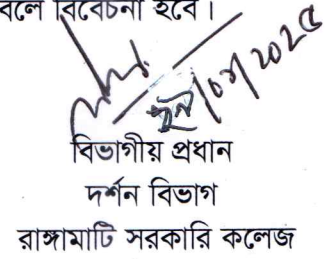 বলে বিবেচনা হবে।
বিভাগীয় প্রধান
দর্শন বিভাগ
রাঙ্গামাটি সরকারি কলেজ